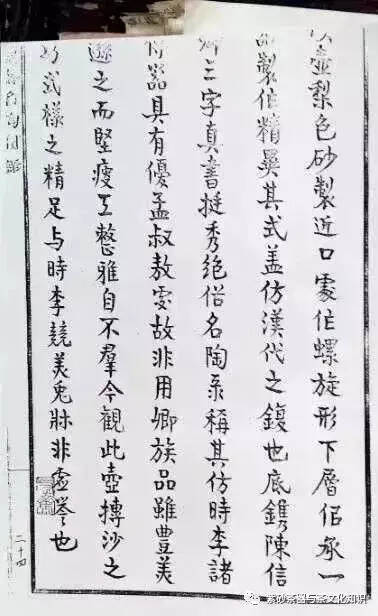 壺梨色砂製近口處作螺旋形下層佀承一
製作精異其式蓋仿漢代之鍑也底鐫陳信
卿三字真書挺秀絕俗名陶系稱其仿時李諸
傳器具有優孟叔敖處故非用卿族品雖豊美
遜之而堅瘦工整雅自不羣今觀此壺摶沙之
巧式樣之精足与時李競美兎牀非虛譽也
名陶圖錄
二十四
紫砂茶器与茶文化知识